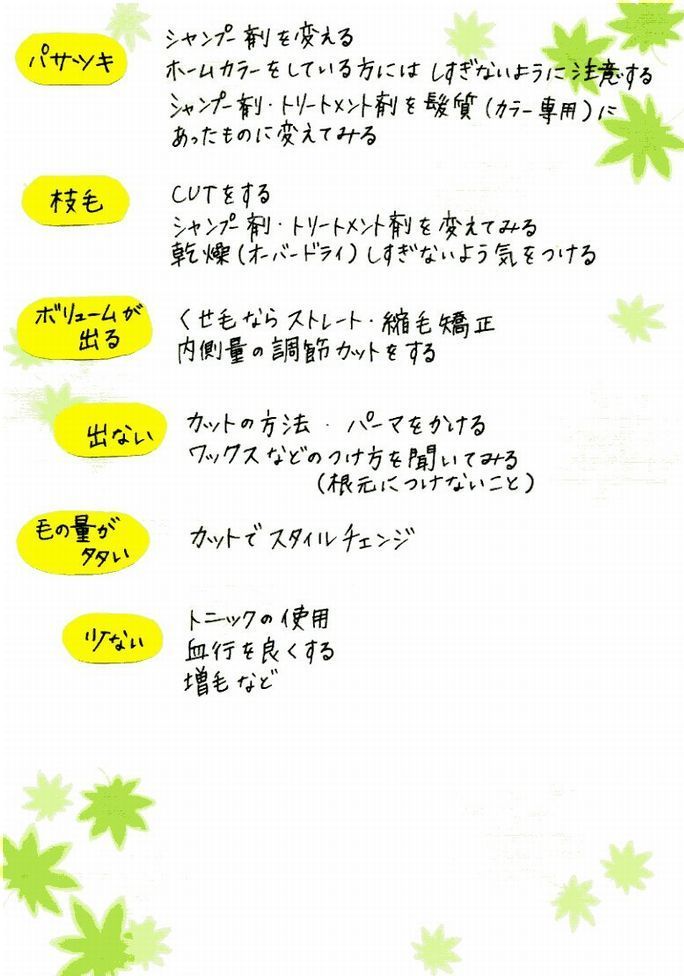 パサツキ
シャンプー剤を変える
ホームカラーをしている方には しすぎないように注意する
シャンプー剤・トリートメント剤を髪質(カラー専用)に
あったものに変えてみる
枝毛
CUTをする
シャンプー剤・トリートメント剤を変えてみる
乾燥(オーバードライ)しすぎないよう気をつける
ボリュームが
出る
くせ毛なら ストレート・縮毛矯正
内側量の調節カットをする
出ない
カットの方法・パーマをかける
ワックスなどのつけ方を聞いてみる
(根元につけないこと)
毛の量が
多い
カットでスタイルチェンジ
少ない
トニックの使用
血行を良くする
増毛など